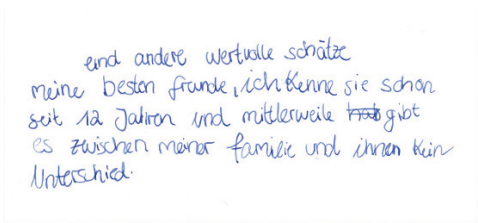 eind andere wertvolle schätze
meine besten frunde, ich kenne sie schon
seit 12 Jahren und mittlerweile gibt
es zwischen meiner familie und ihnen kein
Unterschied.